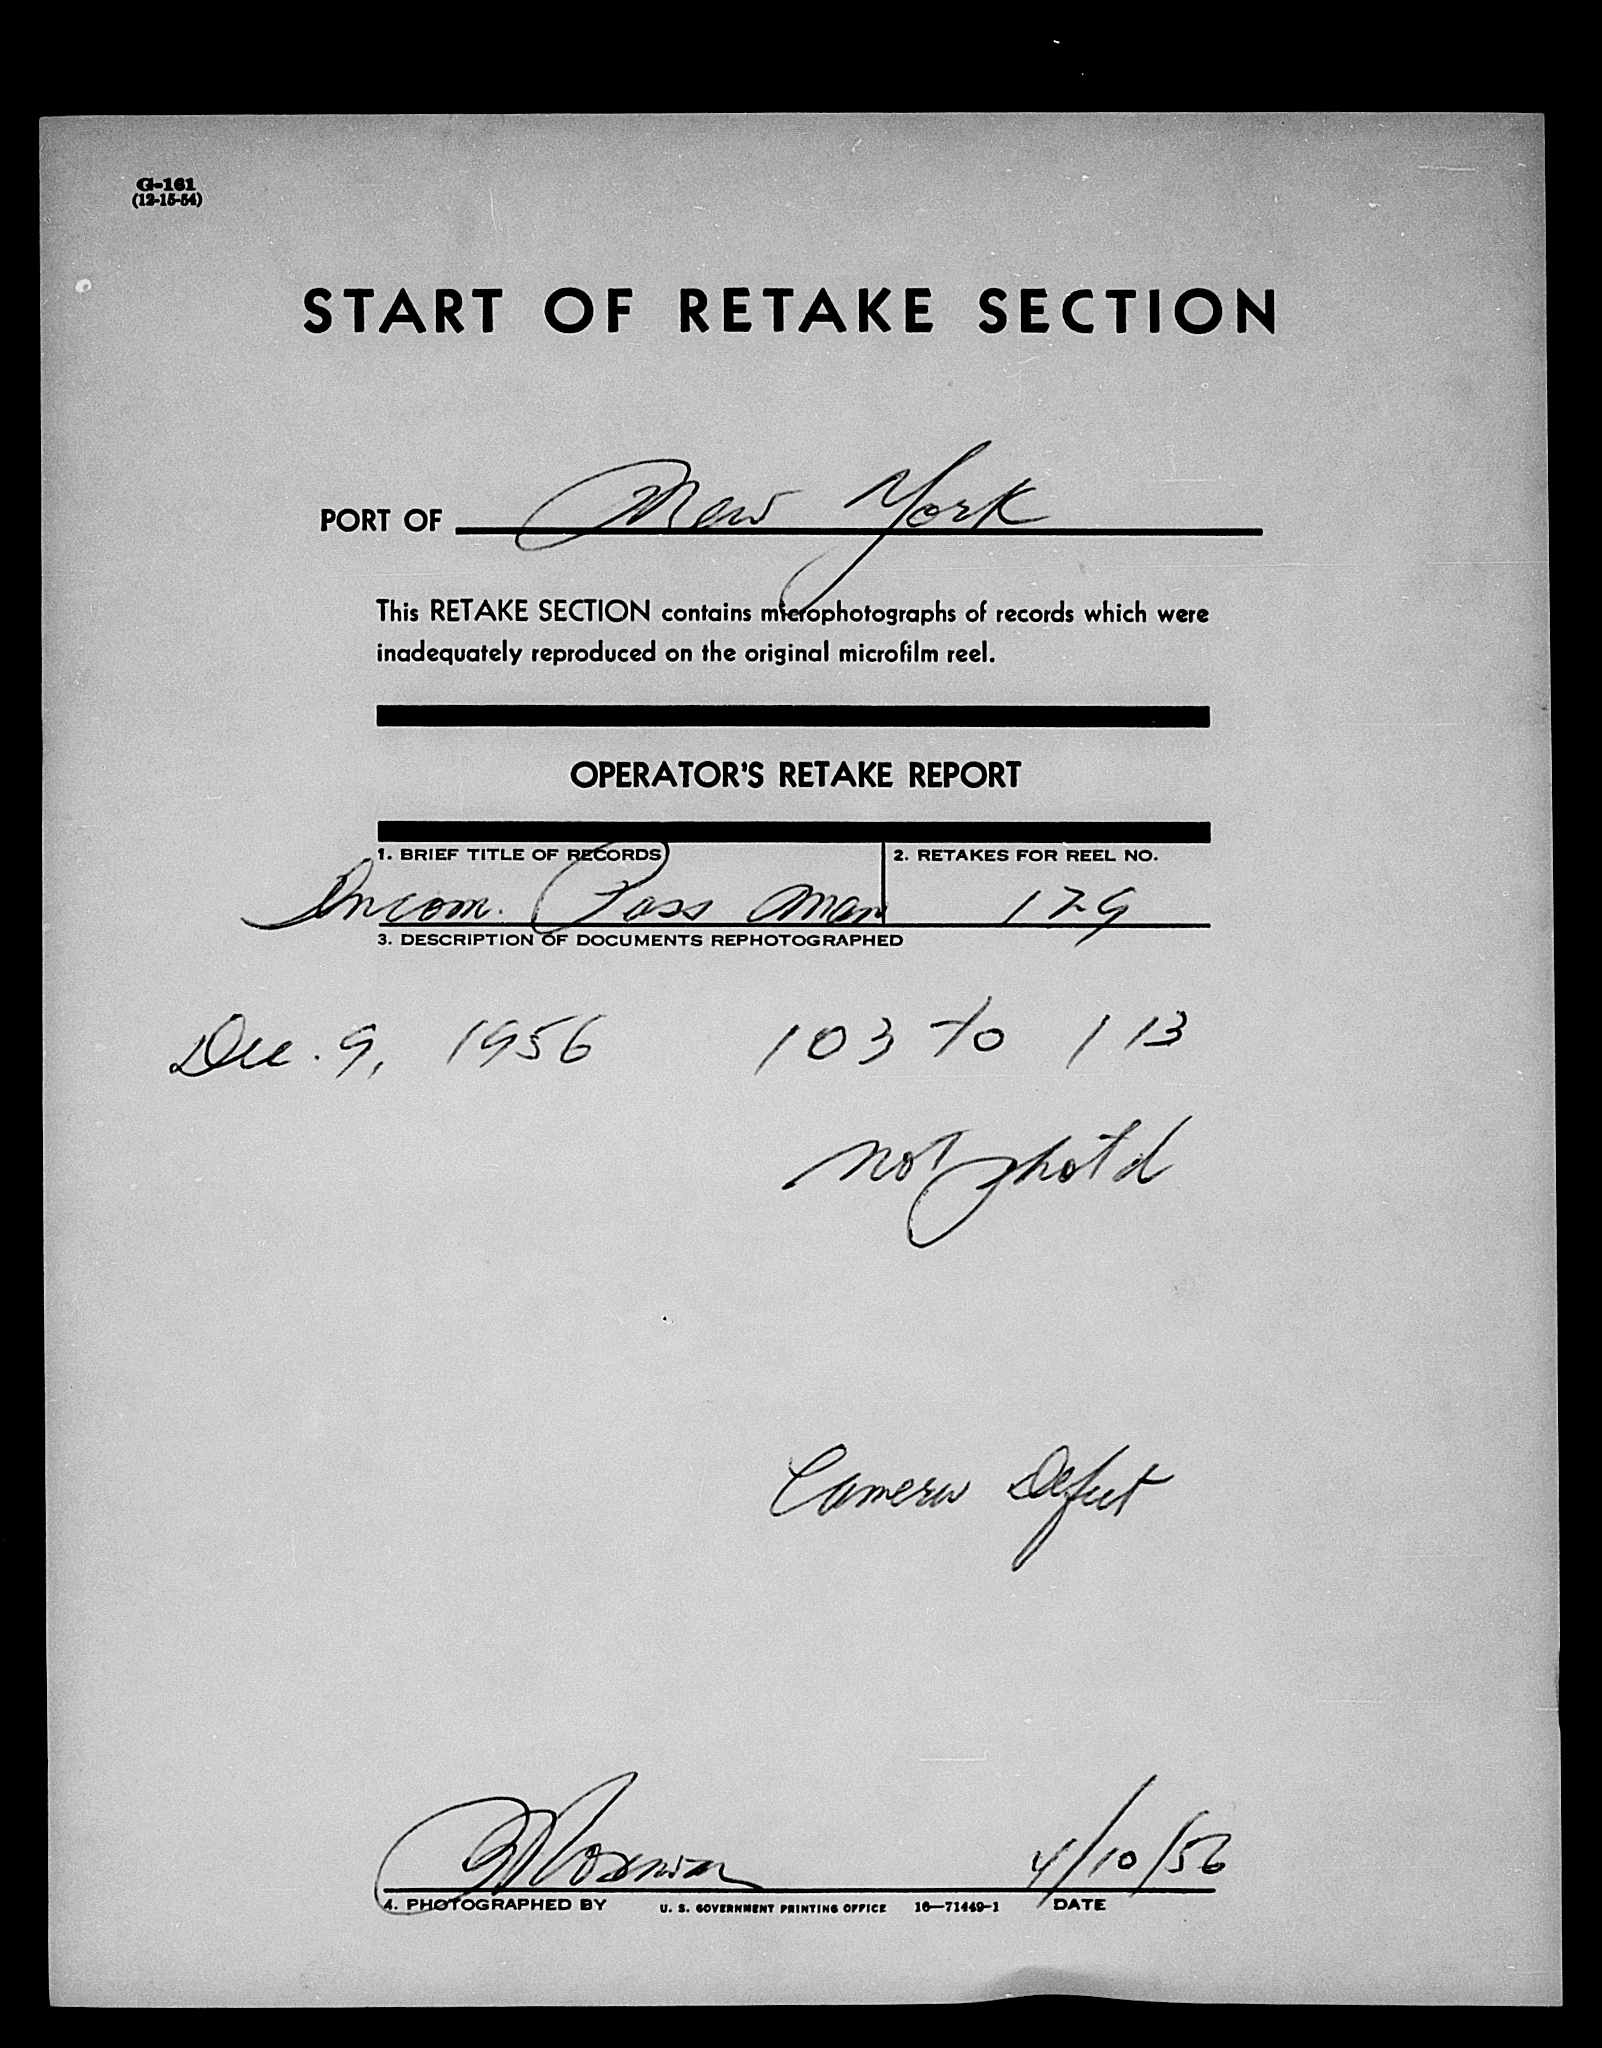 G-161
(12-15-54)
START OF RETAKE SECTION
PORT OF New York
This RETAKE SECTION contains microphotographs of records which were
inadequately reproduced on the original microfilm reel.
OPERATOR'S RETAKE REPORT
1. BRIEF TITLE OF RECORDS
2. RETAKES FOR REEL NO.
Incom. Pass Man 129
3. DESCRIPTION OF DOCUMENTS REPHOTOGRAPHED
Dec. 9, 1956 103 to 113
not phot'd
Camera Defect
4/10/56
4. PHOTOGRAPHED BY U. S. GOVERNMENT PRINTING OFFICE 16—71449-1 DATE